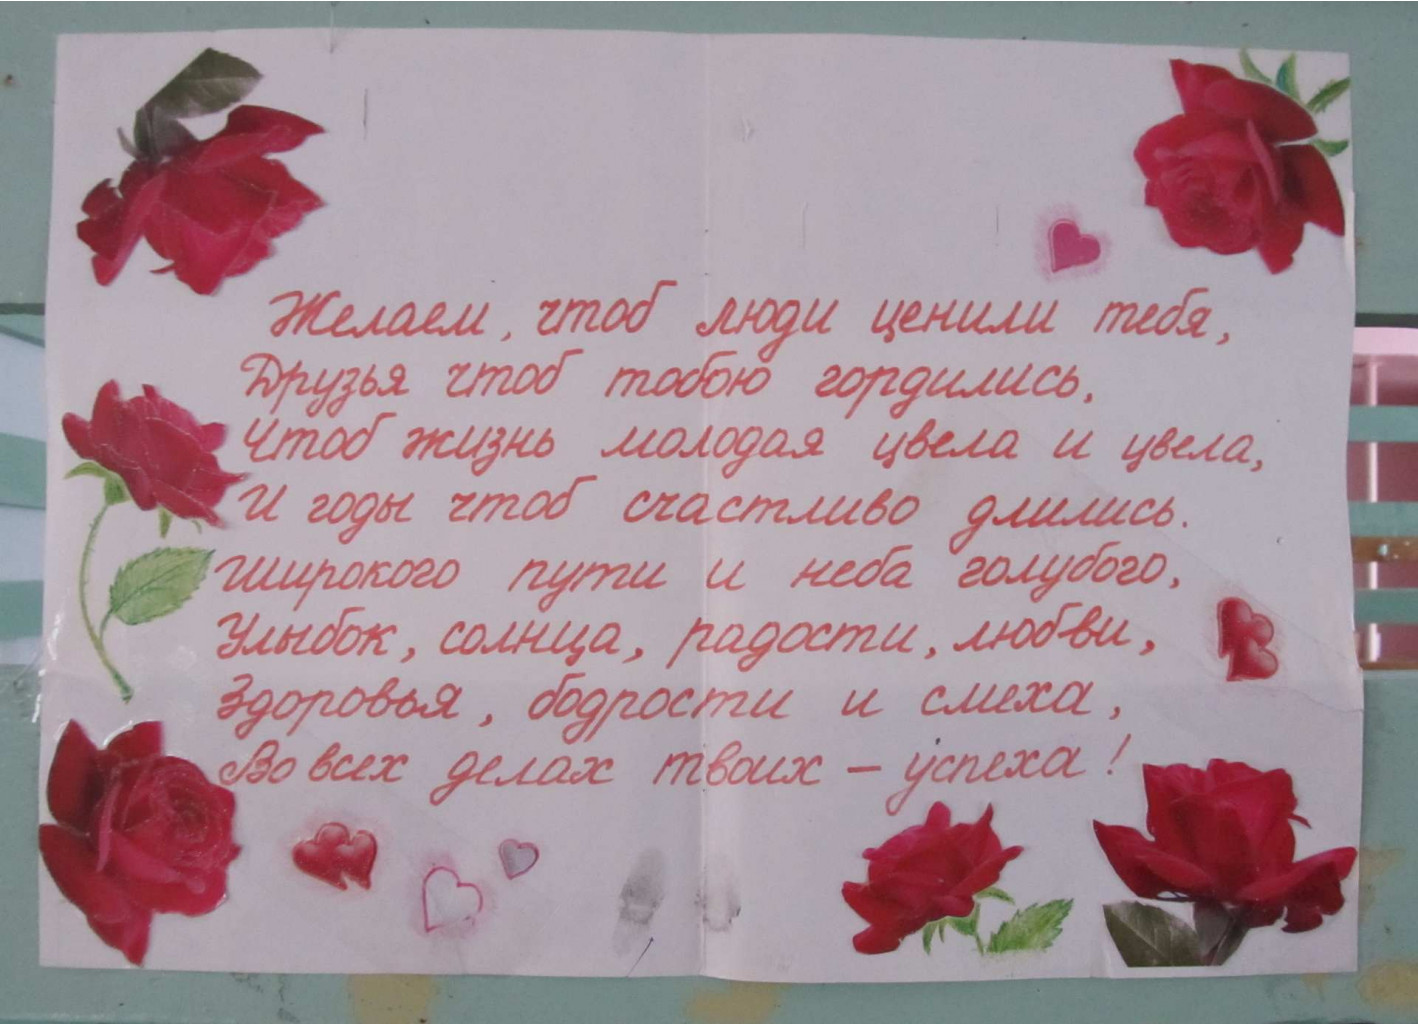 Желаем, чтоб люди ценили тебя,
Друзья чтоб тобою гордились,
Чтоб жизнь молодая цвела и цвела,
И годы чтоб счастливо длились.
Широкого пути и неба голубого,
Улыбок, солнца, радости, любви,
Здоровья, бодрости и смеха,
Во всех делах твоих – успеха!